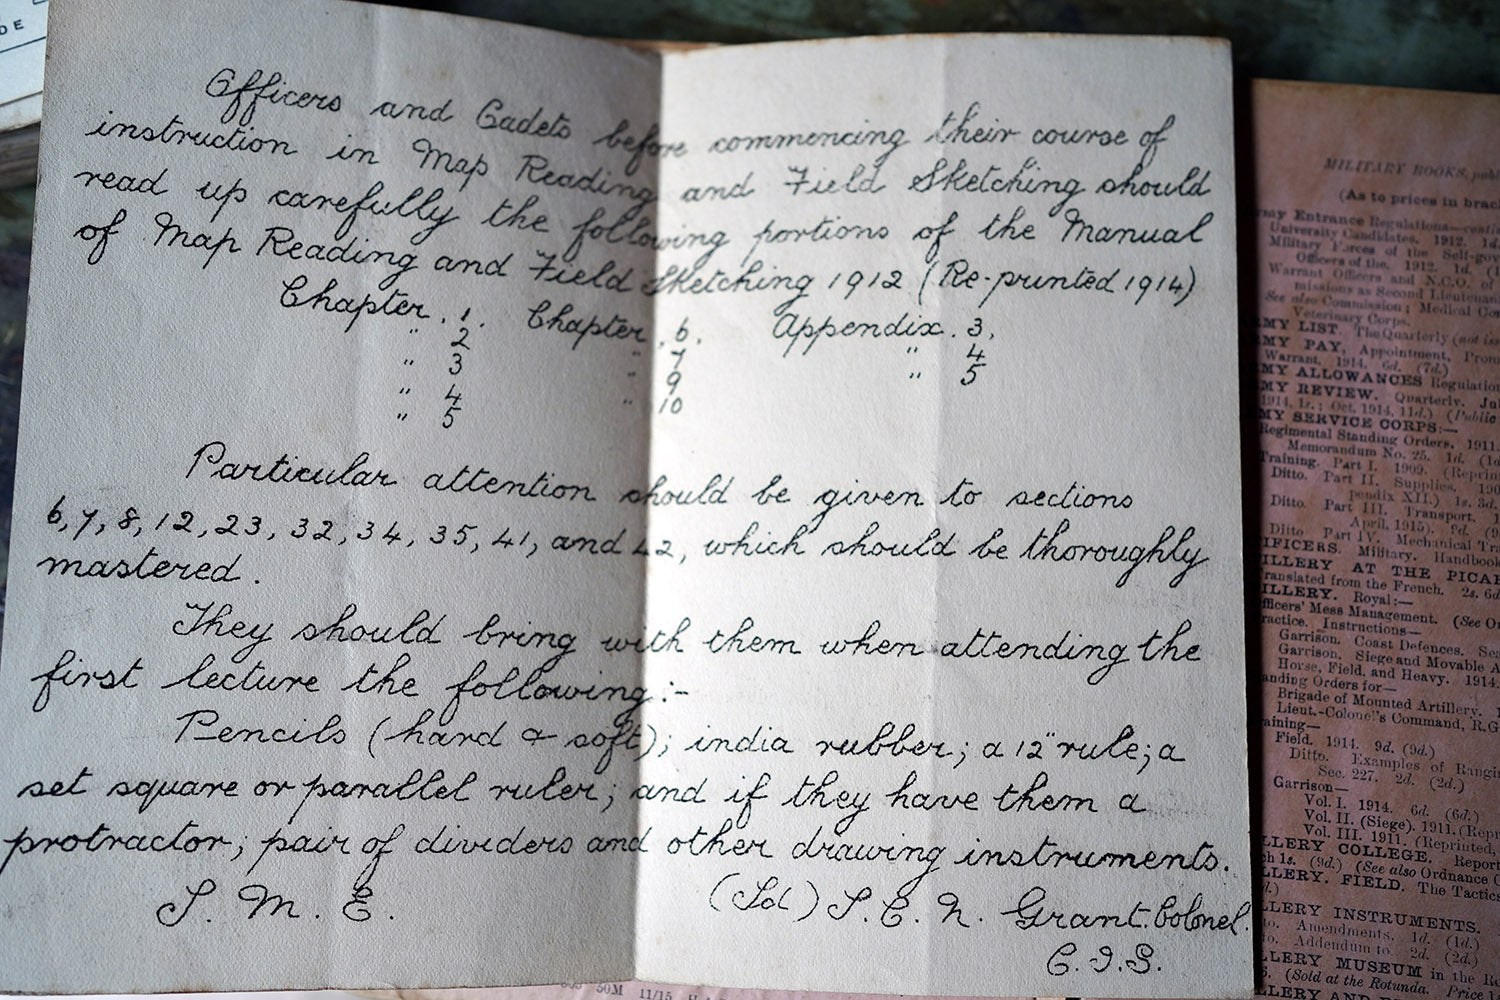 DE
Officers and Cadets before commencing their course of
instruction in Map Reading and Field Sketching should
read up carefully the following portions of the Manual
of Map Reading and Field Sketching 1912 (Re-printed 1914)
Chapter. 1. Chapter. 6. Appendix. 3,
" 2 " 7 " 4
" 3 " 9 " 5
" 4 " 10
" 5
Particular attention should be given to sections
6, 7, 8, 12, 23, 32, 34, 35, 41, and 42, which should be thoroughly
mastered.
They should bring with them when attending the
first lecture the following:-
Pencils (hard & soft); india rubber; a 12" rule; a
set square or parallel ruler; and if they have them a
protractor; pair of dividers and other drawing instruments.
S. M. E. (Sd) S. E. N. Grant. Colonel.
C. I. S.
50M 11/15
MILITARY BOOKS, publ
(As to prices in brac
my Entrance Regulations—contin
University Candidates. 1912. 1d.
Military Forces of the Self-gov
Officers of the. 1912. 1d. (1
Warrant Officers and N.C.O. of
missions as Second Lieutenan
See also Commission; Medical Cor
Veterinary Corps.
MY LIST. The Quarterly (not iss
MY PAY, Appointment, Prom
Warrant. 1914. 6d. (7d.)
MY ALLOWANCES Regulation
MY REVIEW. Quarterly. Jul
1914, 1s.; Oct. 1914, 11d.) (Public
MY SERVICE CORPS:—
Regimental Standing Orders. 1911.
Memorandum No. 25. 1d. (1d
Training. Part I. 1909. (Reprin
Ditto. Part II. Supplies. 190
pendix XII.) 1s. 3d.
Ditto. Part III. Transport. 1
April, 1915). 9d. (9
Ditto Part IV. Mechanical Tra
IFICERS. Military. Handbook
ILLERY AT THE PICAR
ranslated from the French. 2s. 6d
ILLERY. Royal:—
fficers' Mess Management. (See Or
ractice. Instructions—
Garrison. Coast Defences. Sea
Garrison. Siege and Movable A
Horse, Field, and Heavy. 1914.
anding Orders for—
Brigade of Mounted Artillery. 1
Lieut.-Colonel's Command, R.G
aining—
Field. 1914. 9d. (9d.)
Ditto. Examples of Rangin
Sec. 227. 2d. (2d.)
Garrison—
Vol. I. 1914. 6d. (6d.)
Vol. II. (Siege). 1911. (Repr
Vol. III. 1911. (Reprinted,
LLERY COLLEGE. Report
ch 1s. (9d.) (See also Ordnance C
LLERY. FIELD. The Tactics
d.)
LLERY INSTRUMENTS.
to. Amendments. 1d. (1d.)
to. Addendum to. 2d. (2d.)
LLERY MUSEUM in the R
6. (Sold at the Rotunda. Price 1
LLERY AND